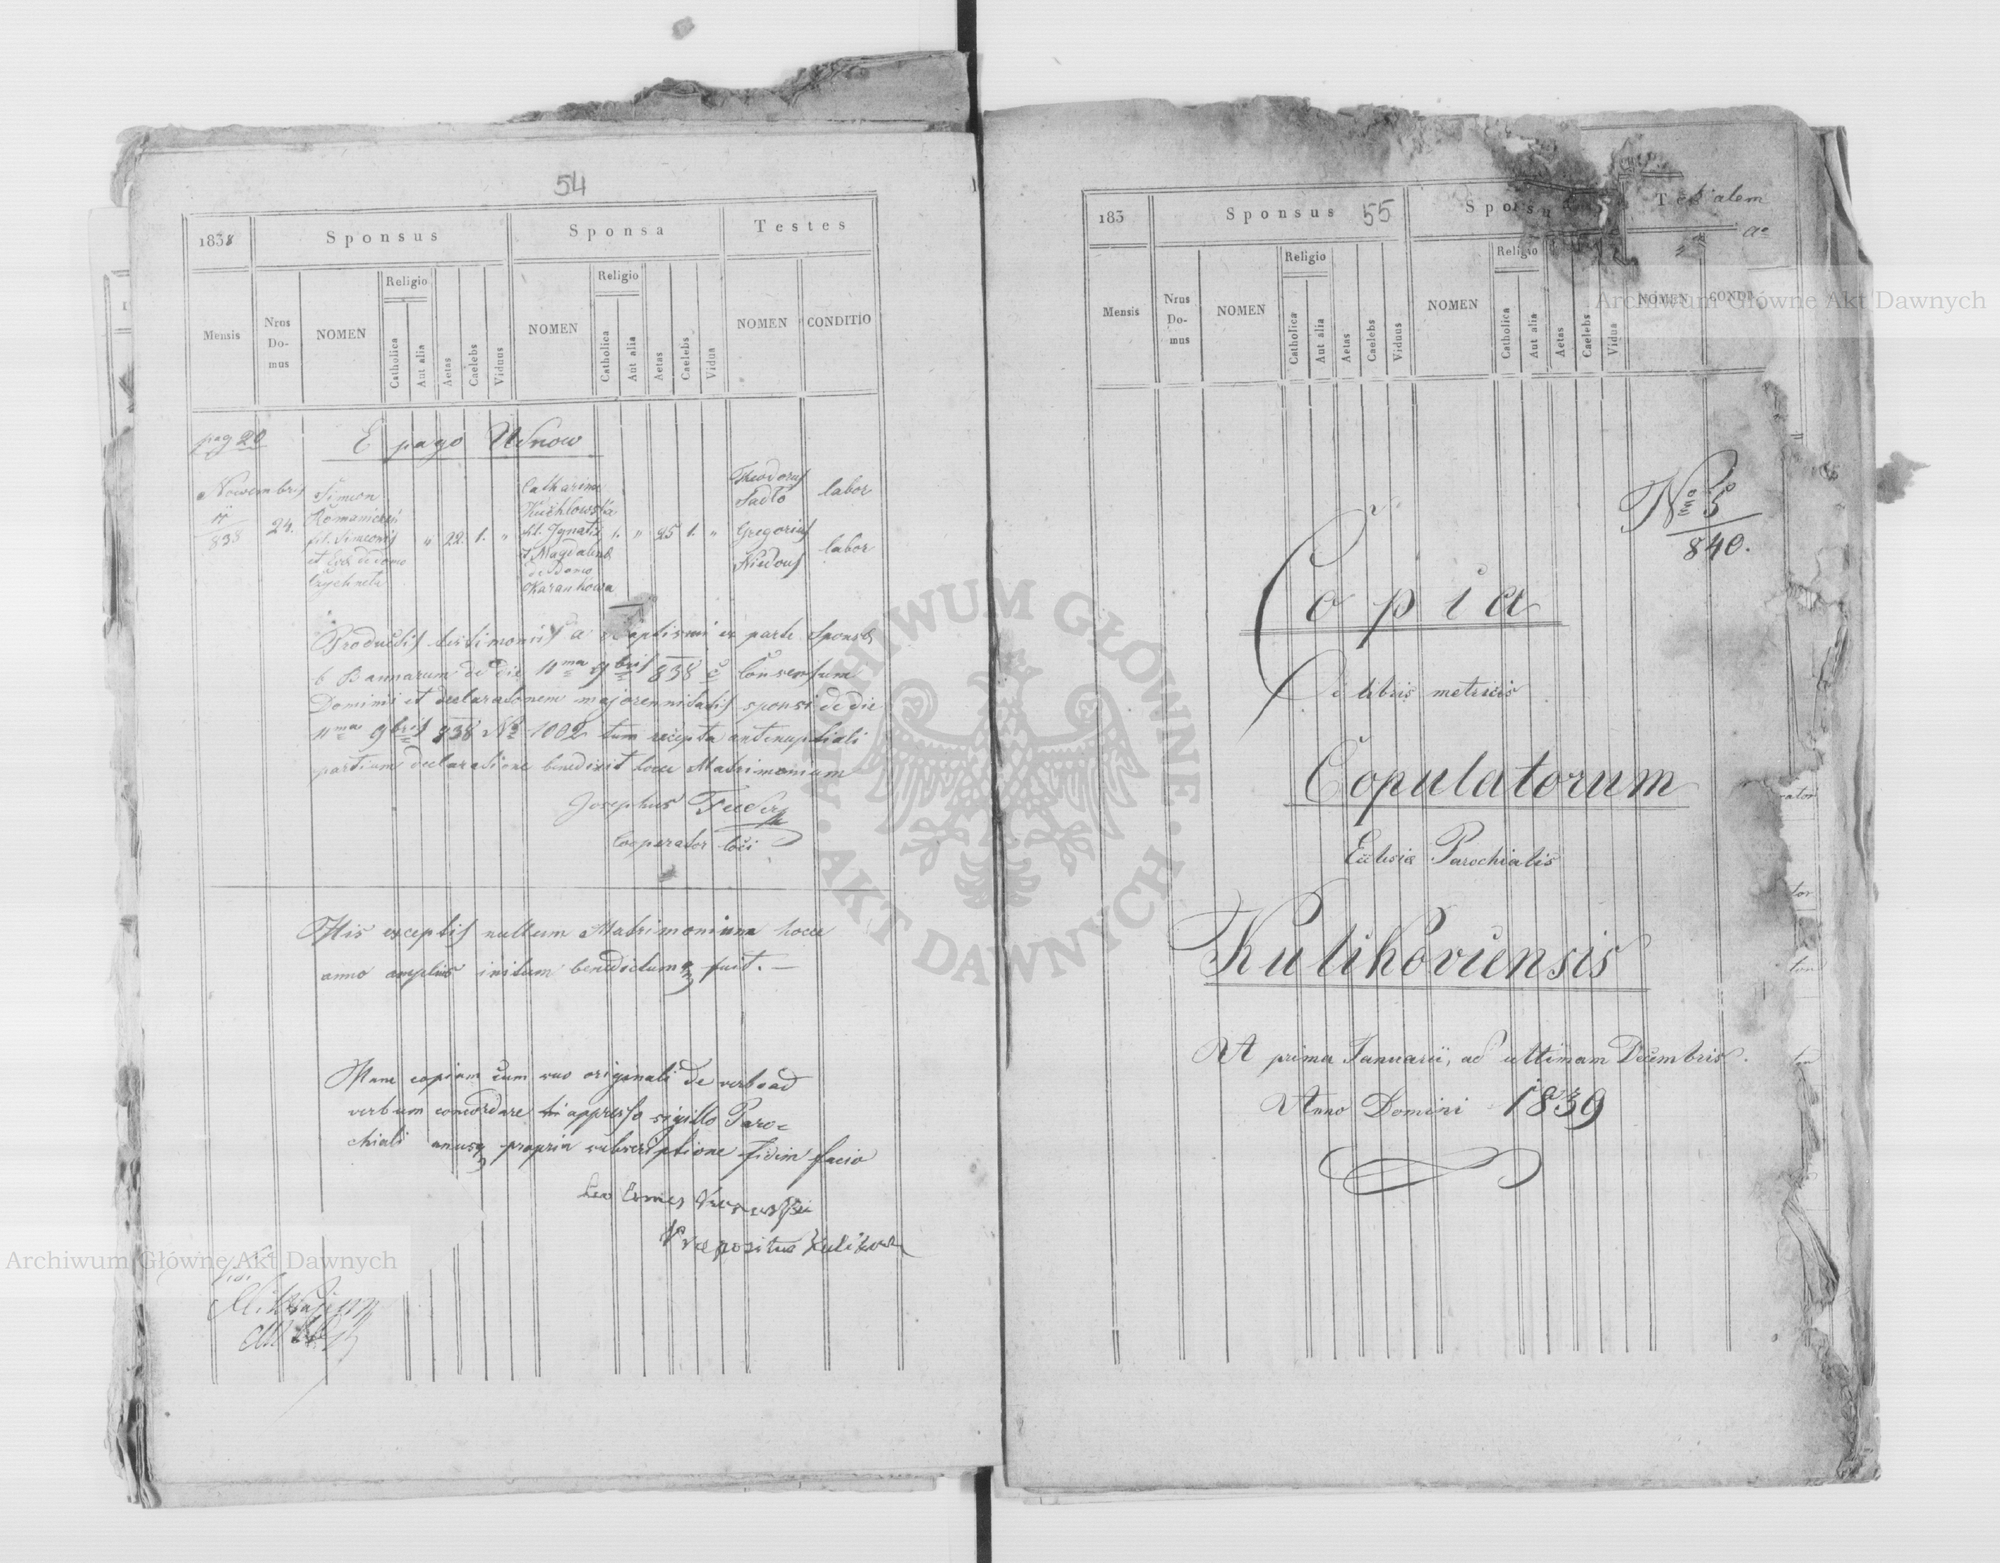 54
1838
Sponsus
Sponsa
Testes
Mensis
Nrus Domus
NOMEN
Religio
Catholica
Aut alia
Aetas
Caelebs
Viduus
NOMEN
Religio
Catholica
Aut alia
Aetas
Caelebs
Vidua
NOMEN
CONDITIO
pag 20
E pago Udnow
Novembris
838
24.
Simeon
fil. Simeonis
" 22. 1. "
Catharina
fil. Ignatii
et Magdalena
de Domo
1. " 25 1. "
Theodorus
Sadło
labor
Gregorius
labor
Productis testimoniis a Baptismi ex parte Sponsæ
b Bannarum de die 11ma 9bris 838 c Consensum
Dominii et declarationem majorennitatis sponsi de die
11ma 9bris 838 No 1002 tum recepta antenuptiali
partium declaratione benedixit hocce Matrimonium
Josephus
Cooperator loci
His exceptis nullum Matrimonium hocce
anno amplius initum benedictumq fuit. —
Hanc copiam cum suo originali de verbo ad
verbum concordare appresso sigillo Paro=
chiali manuq propria subscriptione fidem facio
Leo
Præpositus
55
183
Sponsus
Sponsa
Testes
Mensis
Nrus Domus
NOMEN
Religio
Catholica
Aut alia
Aetas
Caelebs
Viduus
NOMEN
Religio
Catholica
Aut alia
Aetas
Caelebs
Vidua
NOMEN
No 5
840.
Copia
E libris metricis
Copulatorum
Ecclesiæ Parochialis
Kulikoviensis
A prima Januarii, ad ultimam Decembris.
Anno Domini 1839
Archiwum Główne Akt Dawnych
Archiwum Główne Akt Dawnych
ARCHIWUM GŁÓWNE · AKT DAWNYCH ·